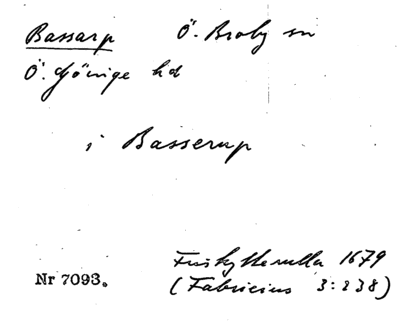 Bassarp Ö. Broby sn
Ö. Göinge hd
i Basserup
Friskytterulla 1679
Nr 7093.
(Fabricius 3:238)